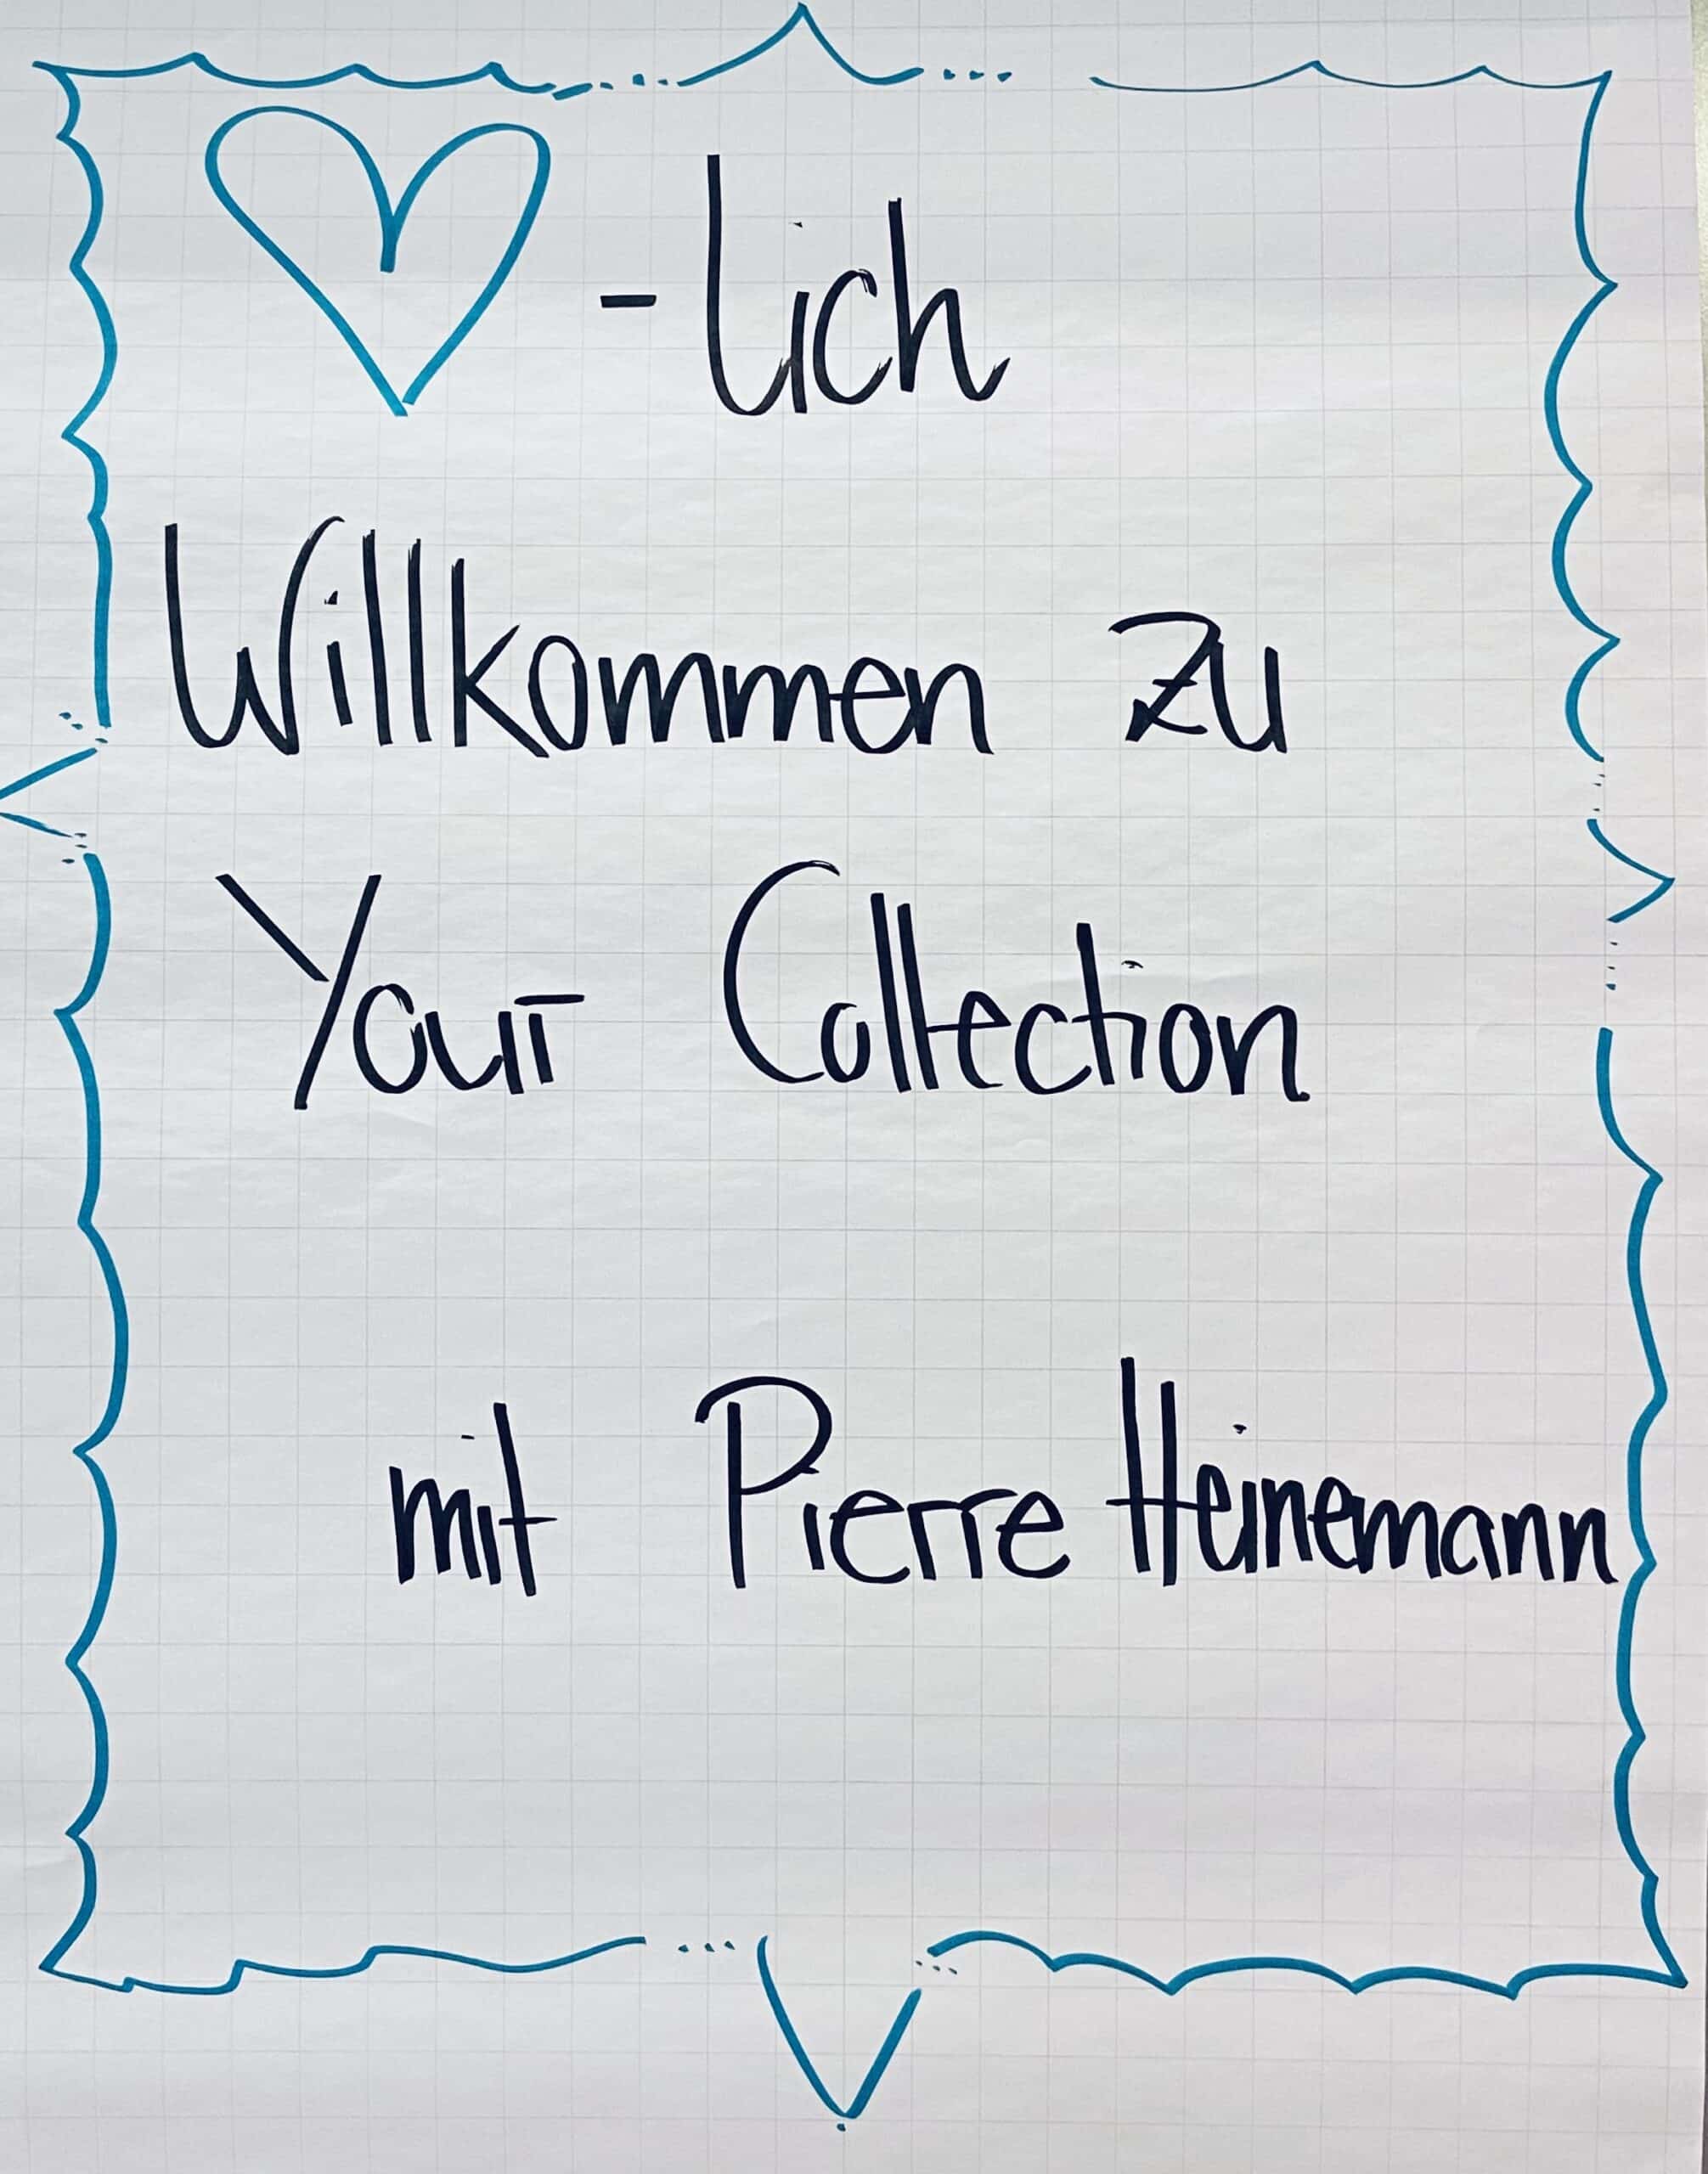 -lich
Willkommen zu
Your Collection
mit Pierre Heinemann